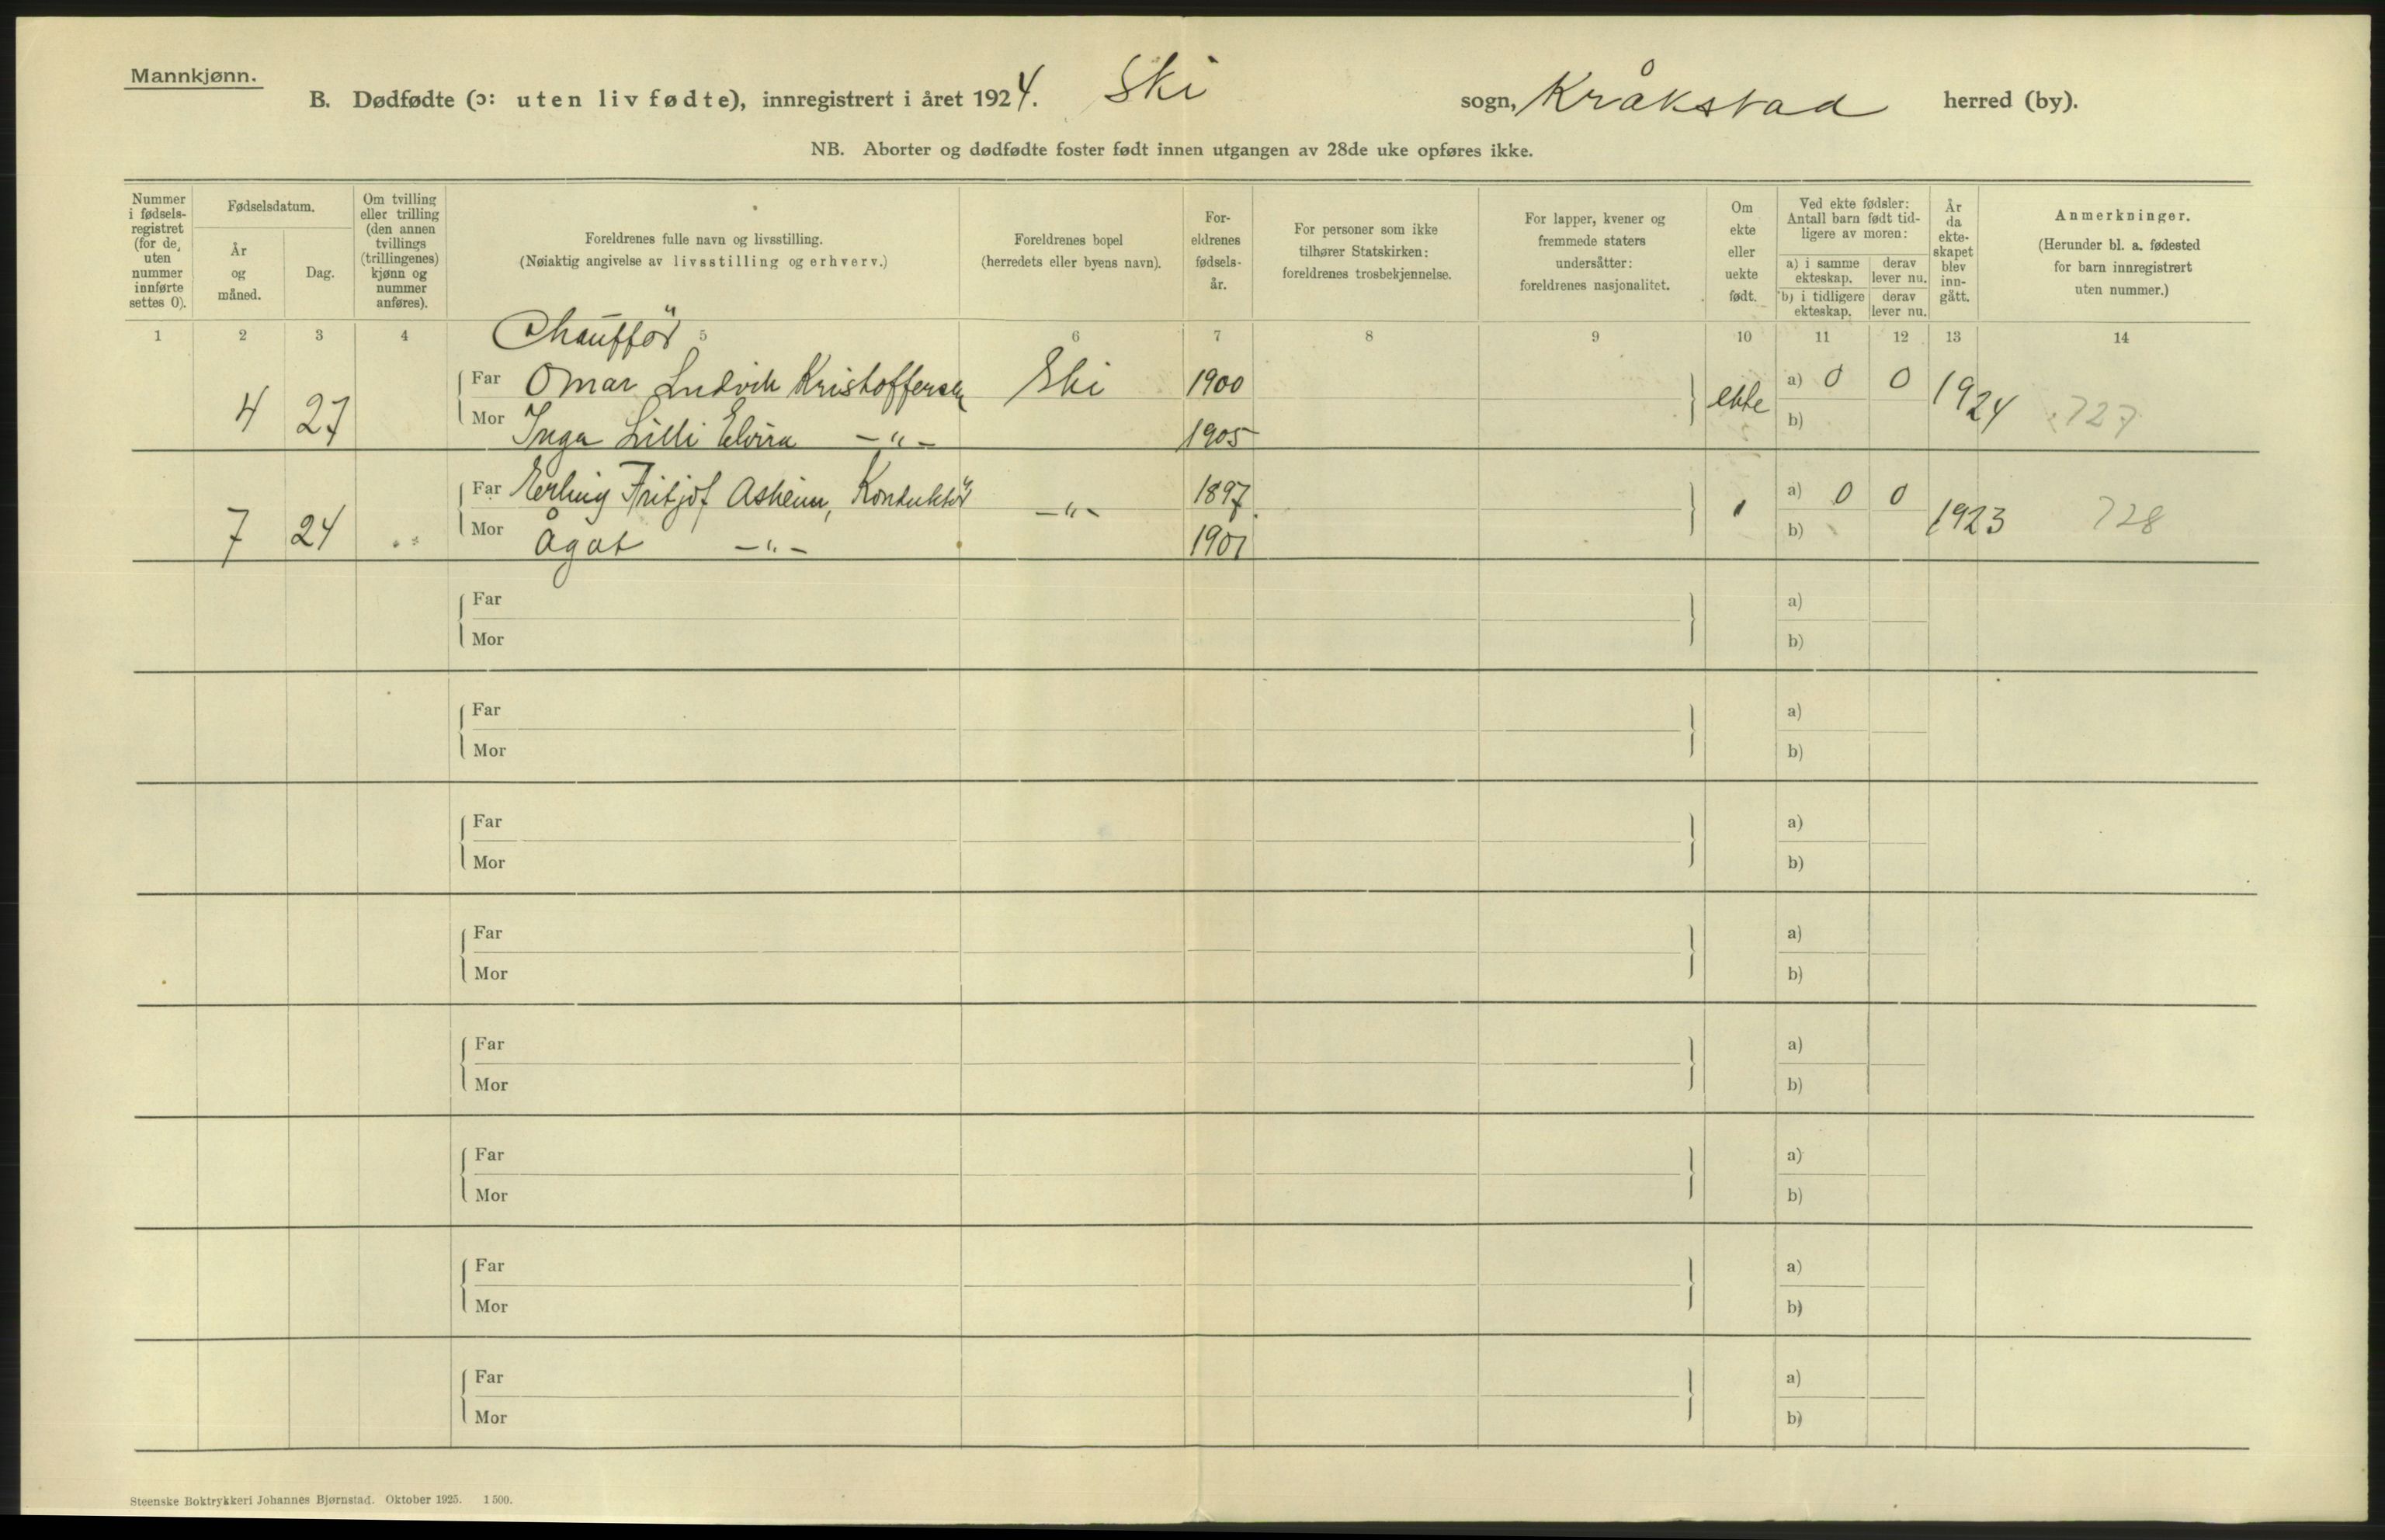 Mannkjønn.
B. Dødfødte (ɔ: uten liv fødte), innregistrert i året 1924. Ski sogn, Kråkstad herred (by).
NB. Aborter og dødfødte foster født innen utgangen av 28de uke opføres ikke.
Nummer i fødsels-registret (for de, uten nummer innførte settes 0).
Fødselsdatum.
År og måned.
Dag.
Om tvilling eller trilling (den annen tvillings (trillingenes) kjønn og nummer anføres).
Foreldrenes fulle navn og livsstilling.
(Nøiaktig angivelse av livsstilling og erhverv.)
Foreldrenes bopel
(herredets eller byens navn).
For-eldrenes fødsels-år.
For personer som ikke tilhører Statskirken: foreldrenes trosbekjennelse.
For lapper, kvener og fremmede staters undersåtter: foreldrenes nasjonalitet.
Om ekte eller uekte født.
Ved ekte fødsler: Antall barn født tid-ligere av moren:
a) i samme ekteskap. derav lever nu.
b) i tidligere ekteskap. derav lever nu.
År da ekte-skapet blev inn-gått.
Anmerkninger.
(Herunder bl. a. fødested for barn innregistrert uten nummer.)
1 2 3 4 5 6 7 8 9 10 11 12 13 14
Chauffør
4 27 Far Omar Ludvik Kristoffersen Ski 1900 ekte a) 0 0 1924 727
Mor Inga Lilli Elvira —„— 1905 b)
7 24 Far Erling Fritjof Asheim, Konduktør —„— 1897 a) 0 0 1923 728
Mor Ågot —„— 1901 b)
Far a)
Mor b)
Far a)
Mor b)
Far a)
Mor b)
Far a)
Mor b)
Far a)
Mor b)
Far a)
Mor b)
Far a)
Mor b)
Far a)
Mor b)
Steenske Boktrykkeri Johannes Bjørnstad. Oktober 1925. 1500.